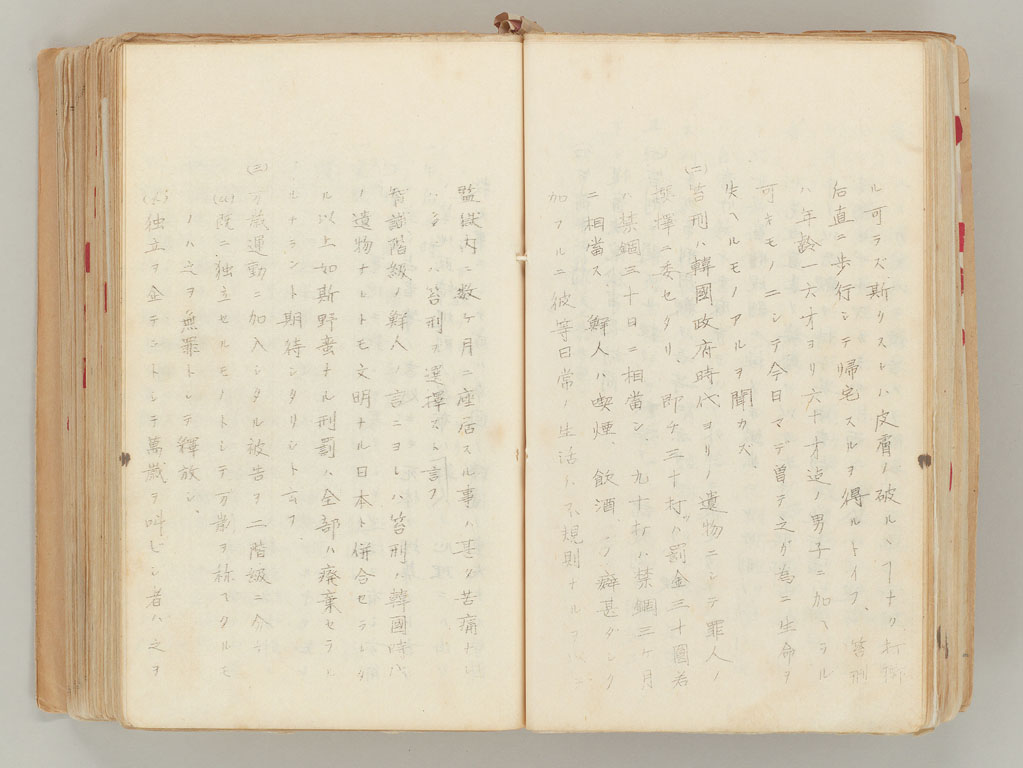 ル可ラズ斯リストハ皮膚ノ破ルヽ「ナク打擲
后直ニ歩行シテ帰宅スルヲ得ルトイフ、笞刑
ハ年齢一六才ヨリ六十才迠ノ男子ニ加ヘラル
可キモノニシテ今日マデ曽テ之ガ為ニ生命ヲ
失ヘルモノアルヲ聞カズ
(二)笞刑ハ韓國政府時代ヨリノ遺物ニシテ罪人ノ
擇ニ委セタリ 即チ三十打ハ罰金三十圓若
ハ禁錮三十日ニ相當シ、九十打ハ禁錮三ヶ月
ニ相當ス 鮮人ハ喫煙 飲酒ノ癖甚ダシク
加フルニ彼等日常ノ生活ハ不規則ナル
監獄内ニ数ヶ月ニ座居スル事ハ甚ダ苦痛
笞刑ヲ選擇スト言フ
智識階級ノ鮮人ノ言ニヨレハ笞刑ハ韓國時代
ノ遺物ナレトモ文明ナル日本ト併合セラレタ
ル以上如斯野蛮ナル刑罰ハ全部ハ癈棄セラル
モナラント期待シタリシト云フ
(三)万歳運動ニ加入シタル被告ヲ二階級ニ分テ
(a)既ニ独立セルモノトシテ万歳ヲ称ヘタルモ
ノハ之ヲ無罪トシテ釋放シ、
(b)独立ヲ企テントシテ萬歳ヲ叫ビシ者ハ之ヲ